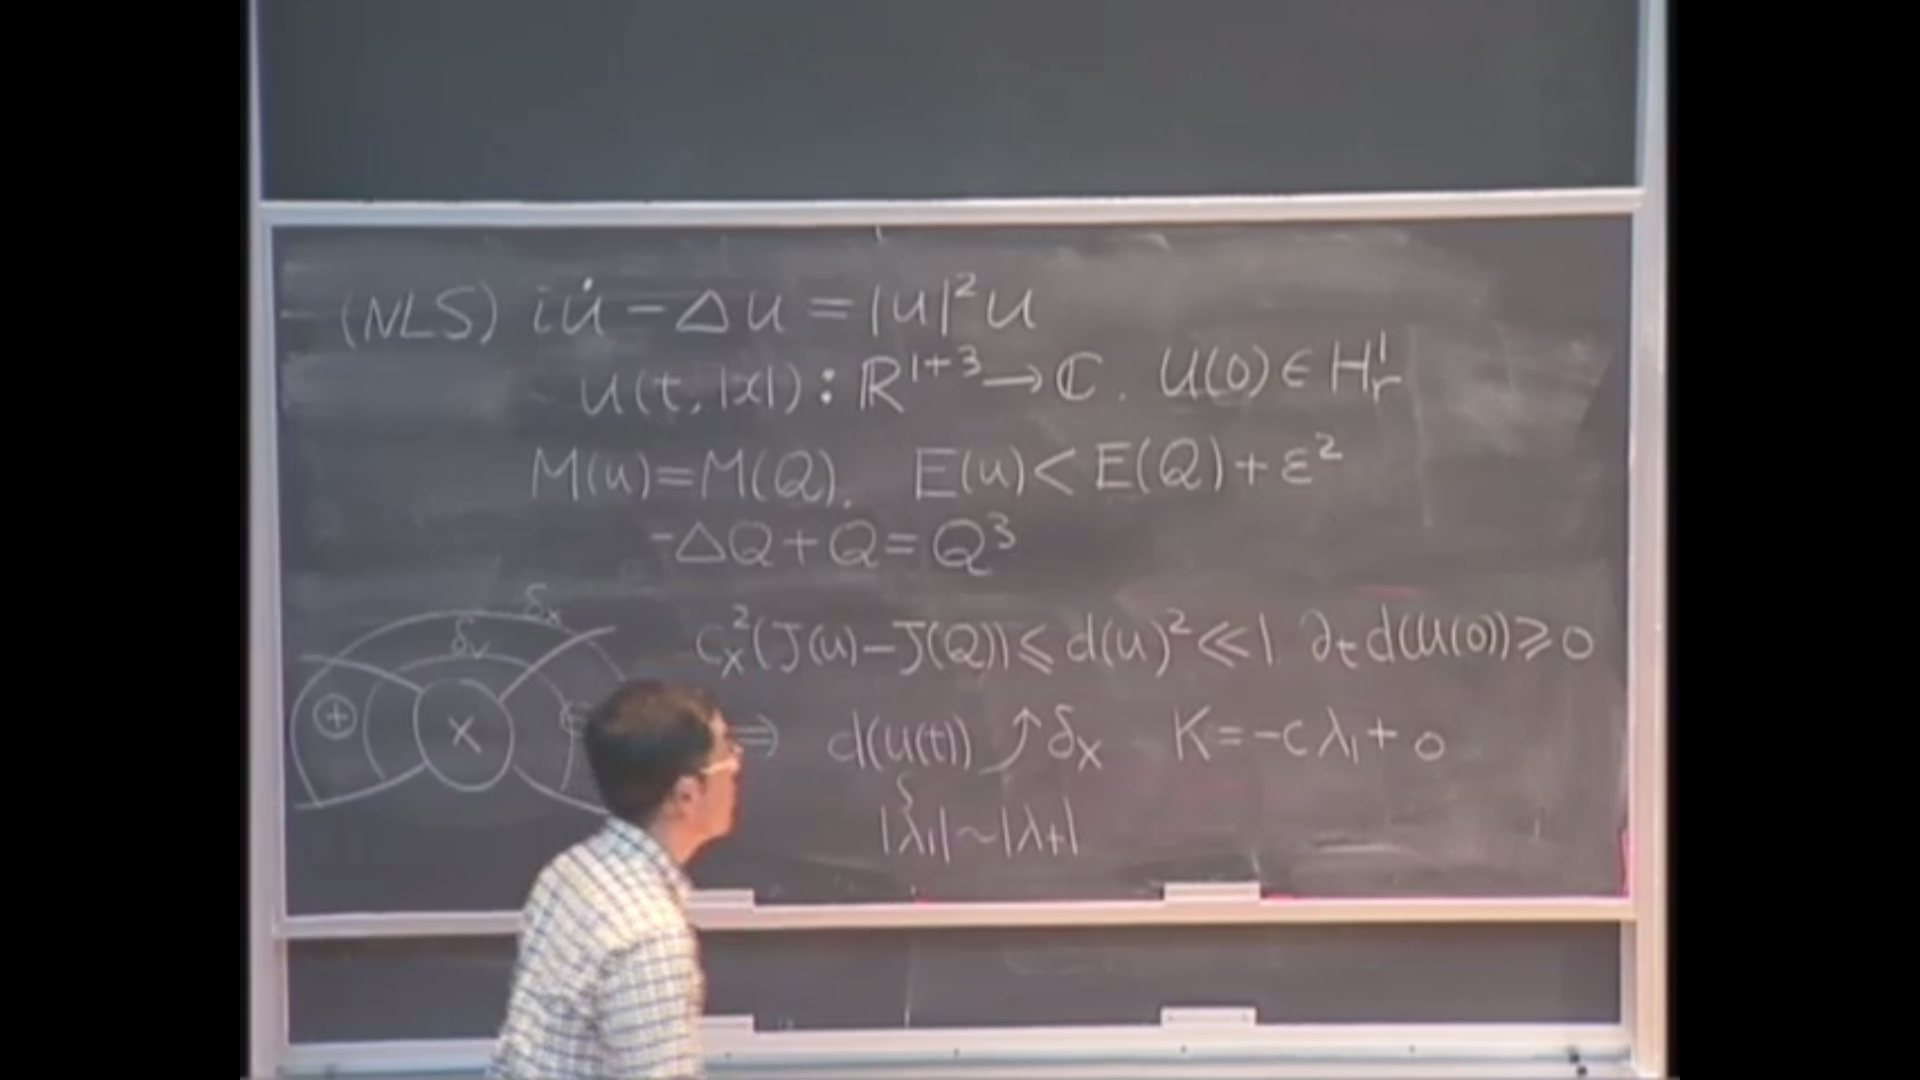 (NLS) iu̇ − Δu = |u|²u
u(t, |x|) : ℝ¹⁺³ → ℂ. u(0) ∈ H¹ᵣ
M(u) = M(Q), E(u) < E(Q) + ε²
−ΔQ + Q = Q³
δ_X
δ_V
C_X²(J(u) − J(Q)) ≤ d(u)² ≪ 1 ∂ₜd(u(0)) ≥ 0
⊕ X
⇒ d(u(t)) ↗ δ_X K = −cλ₁ + o
|λ₁| ~ |λ₊|